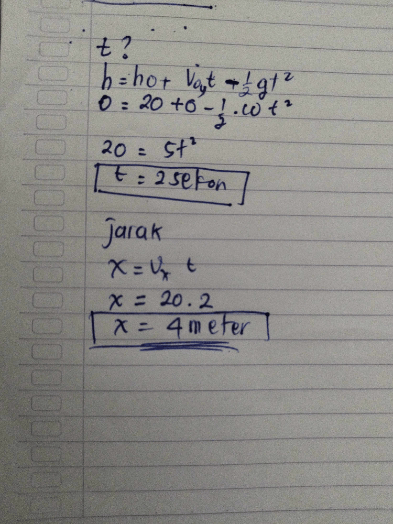 t?
h = ho + Voyt - ½gt²
0 = 20 + 0 - ½.10 t²
20 = 5t²
t = 2 sekon
jarak
x = Vx t
x = 20.2
x = 4 meter